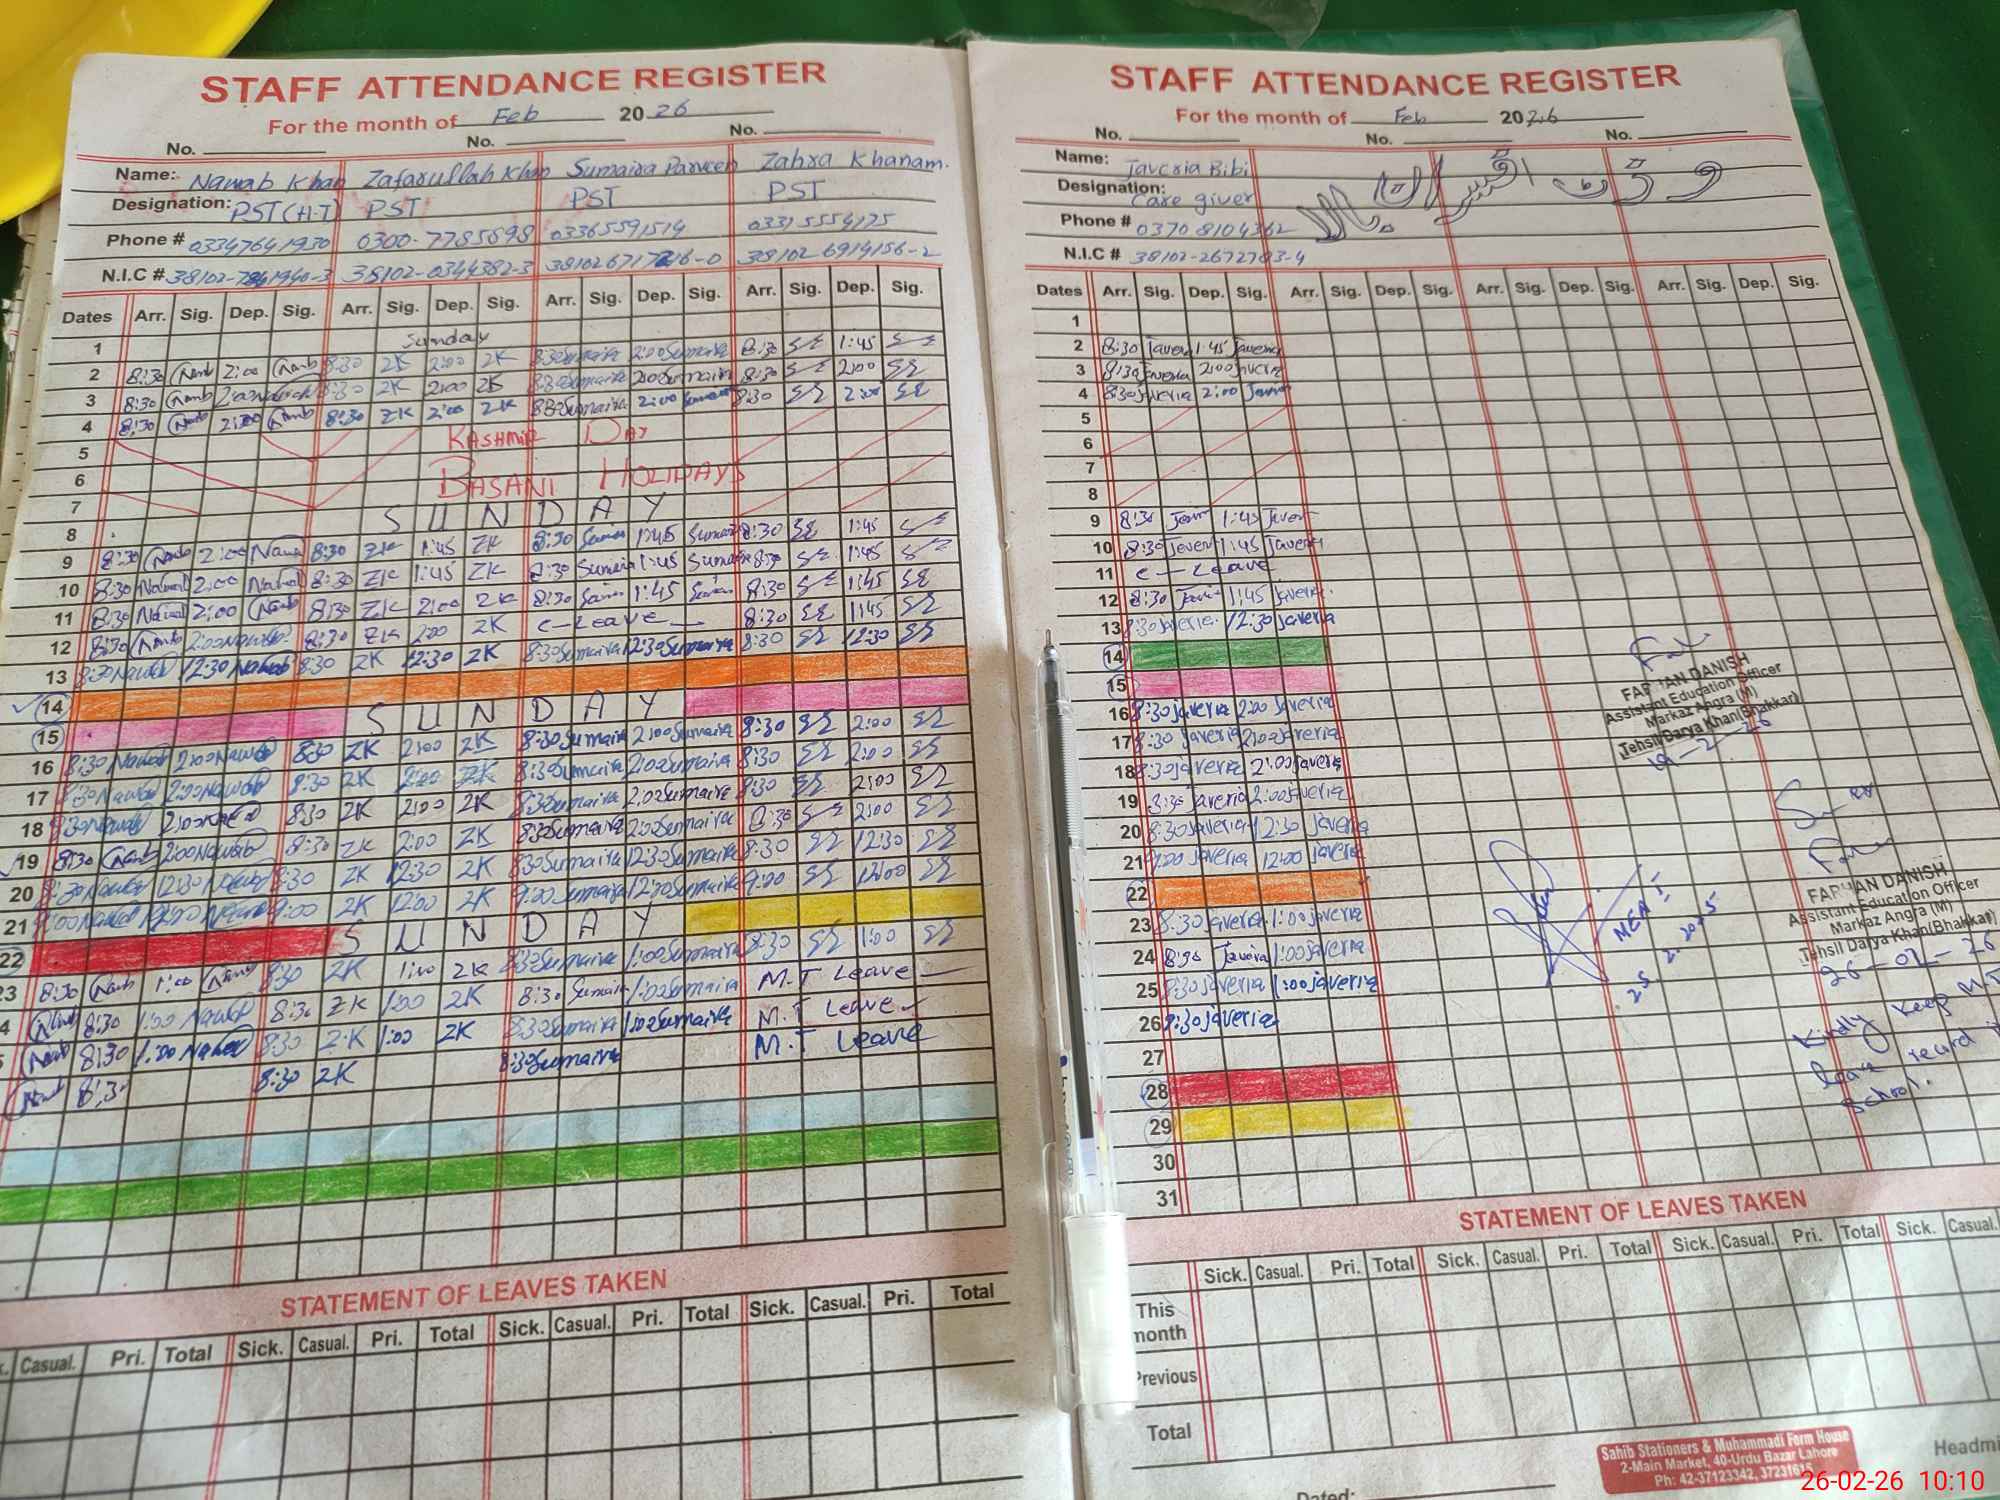 STAFF ATTENDANCE REGISTER
For the month of Feb 2026
No. No. No.
Name: Nawab Khan Zafarullah Khan Sumaira Parveen Zahra Khanam.
Designation: PST (H.T) PST PST PST
Phone # 03347641930 0300-7785898 03365591514 03315554125
N.I.C # 38102-0344382-3 38102-6914156-2
Dates Arr. Sig. Dep. Sig. Arr. Sig. Dep. Sig. Arr. Sig. Dep. Sig. Arr. Sig. Dep. Sig.
1 Sunday
2 8:30 2:00 8:30 ZK 2:00 ZK 8:30 Sumaira 2:00 Sumaira 8:30 1:45
3 8:30 2:00 8:30 ZK 2:00 ZK 8:30 Sumaira 2:00 Sumaira 8:30 2:00
4 8:30 2:00 8:30 ZK 2:00 ZK 8:30 Sumaira 2:00 8:30 2:00
5 KASHMIR DAY
6 BASANT HOLIDAYS
7
8 SUNDAY
9 8:30 2:00 8:30 ZK 1:45 ZK 8:30 1:45 8:30 1:45
10 8:30 2:00 8:30 ZK 1:45 ZK 8:30 1:45 8:30 1:45
11 8:30 2:00 8:30 ZK 2:00 ZK 8:30 1:45 8:30 1:45
12 8:30 2:00 Nawab 8:30 ZK 2:00 ZK C-Leave 8:30 1:45
13 8:30 Nawab 12:30 Nawab 8:30 ZK 12:30 ZK 8:30 Sumaira 12:30 Sumaira 8:30 12:30
14
15 SUNDAY
16 8:30 Nawab 2:00 Nawab 8:30 ZK 2:00 ZK 8:30 Sumaira 2:00 Sumaira 8:30 2:00
17 8:30 Nawab 2:00 Nawab 8:30 ZK 2:00 ZK 8:30 Sumaira 2:00 Sumaira 8:30 2:00
18 8:30 Nawab 2:00 8:30 ZK 2:00 ZK 8:30 Sumaira 2:00 Sumaira 8:30 2:00
19 8:30 2:00 Nawab 8:30 ZK 2:00 ZK 8:30 Sumaira 2:00 Sumaira 8:30 2:00
20 8:30 Nawab 12:30 Nawab 8:30 ZK 12:30 ZK 8:30 Sumaira 12:30 Sumaira 8:30 12:30
21 9:00 Nawab 12:00 9:00 ZK 12:00 ZK 9:00 Sumaira 12:00 Sumaira 9:00 12:00
22 SUNDAY
23 8:30 1:00 8:30 ZK 1:00 ZK 8:30 Sumaira 1:00 Sumaira 8:30 1:00
4 8:30 1:00 Nawab 8:30 ZK 1:00 ZK 8:30 Sumaira 1:00 Sumaira M.T Leave
8:30 1:00 Nawab 8:30 ZK 1:00 ZK 8:30 Sumaira 1:00 Sumaira M.T Leave
8:30 8:30 ZK 8:30 Sumaira M.T Leave
STATEMENT OF LEAVES TAKEN
Casual. Pri. Total Sick. Casual. Pri. Total Sick. Casual. Pri. Total Sick. Casual. Pri. Total
STAFF ATTENDANCE REGISTER
For the month of Feb 2026
No. No. No.
Name: Javeria Bibi
Designation: Care giver
Phone # 03708104362
N.I.C # 38102-2672703-4
Dates Arr. Sig. Dep. Sig. Arr. Sig. Dep. Sig. Arr. Sig. Dep. Sig. Arr. Sig. Dep. Sig.
1
2 8:30 Javeria 1:45 Javeria
3 8:30 Javeria 2:00 Javeria
4 8:30 Javeria 2:00 Javeria
5
6
7
8
9 8:30 1:45 Javeria
10 8:30 Javeria 1:45 Javeria
11 C-Leave
12 8:30 1:45 Javeria.
13 8:30 Javeria 12:30 Javeria
14
15
16 8:30 Javeria 2:00 Javeria
17 8:30 Javeria 2:00 Javeria
18 8:30 Javeria 2:00 Javeria
19 8:30 Javeria 2:00 Javeria
20 8:30 Javeria 12:30 Javeria
21 9:00 Javeria 12:00 Javeria
22
23 8:30 Javeria 1:00 Javeria
24 8:30 Javeria 1:00 Javeria
25 8:30 Javeria 1:00 Javeria
26 8:30 Javeria
27
28
29
30
31
FARHAN DANISH
Assistant Education Officer
Markaz Angra (M)
Tehsil Darya Khan(Bhakkar)
19-2-26
MEA
FARHAN DANISH
Assistant Education Officer
Markaz Angra (M)
Tehsil Darya Khan(Bhakkar)
26-02-26
Kindly keep M.T
leave record
School.
STATEMENT OF LEAVES TAKEN
Sick. Casual. Pri. Total Sick. Casual. Pri. Total Sick. Casual. Pri. Total Sick. Casual.
This month
Previous
Total
Sahib Stationers & Muhammadi Form House
2-Main Market, 40-Urdu Bazar Lahore
Ph: 42-37123342, 37231615
Headmi
Dated:
26-02-26 10:10